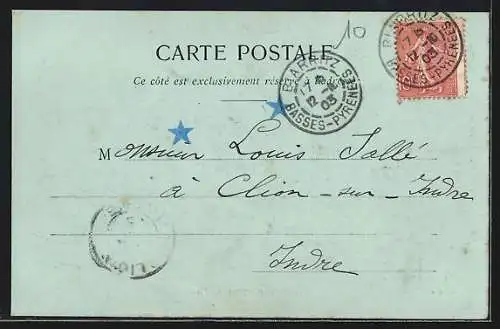 10
CARTE POSTALE
Ce côté est exclusivement réservé à l'adresse
BIARRITZ
17 12 03
BASSES-PYRENEES
BIARRITZ
17 12 03
BSES-PYRENEES
Monsieur Louis Sallé
à Clion-sur-Indre
Indre
CLION